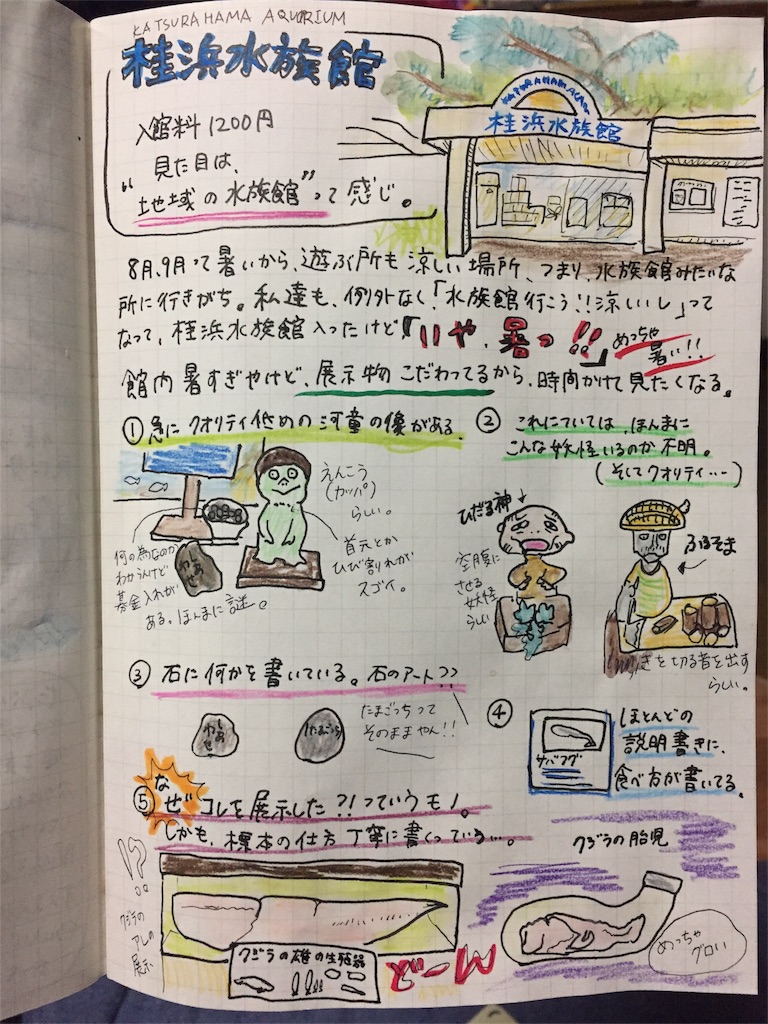 KATSURAHAMA AQUARIUM
桂浜水族館
入館料1200円
見た目は、
"地域の水族館"って感じ。
桂浜水族館
8月、9月って暑いから、遊ぶ所も涼しい場所、つまり、水族館みたいな
所に行きがち。私達も、例外なく、「水族館行こう!!涼しいし」って
なって、桂浜水族館入ったけど「いや、暑っ!!」めっちゃ
暑い!!
館内暑すぎやけど、展示物こだわってるから、時間かけて見たくなる。
①急にクオリティ低めの河童の像がある。
えんこう
(カッパ)
らしい。
首元とか
ひび割れが
スゴイ。
何の為なのか
わからんけど
募金入れが
ある。ほんまに謎。
しあ
わせ
② これについては、ほんまに
こんな妖怪いるのか不明。
(そしてクオリティ…)
ひだる神
空腹に
させる
妖怪
らしい
ふるそま
きを切る音を出す
らしい。
③ 石に何かを書いている。石のアート??
しあ
わせ
たまごっち
たまごっちって
そのままやん!!
④ ほとんどの
説明書きに、
食べ方が書いてる。
サバフグ
⑤ なぜコレを展示した?!っていうモノ。
しかも、標本の仕方丁寧に書くっている…。
!?
クジラの
アレの
展示
クジラの雄の生殖器
クジラの胎児
めっちゃ
グロい